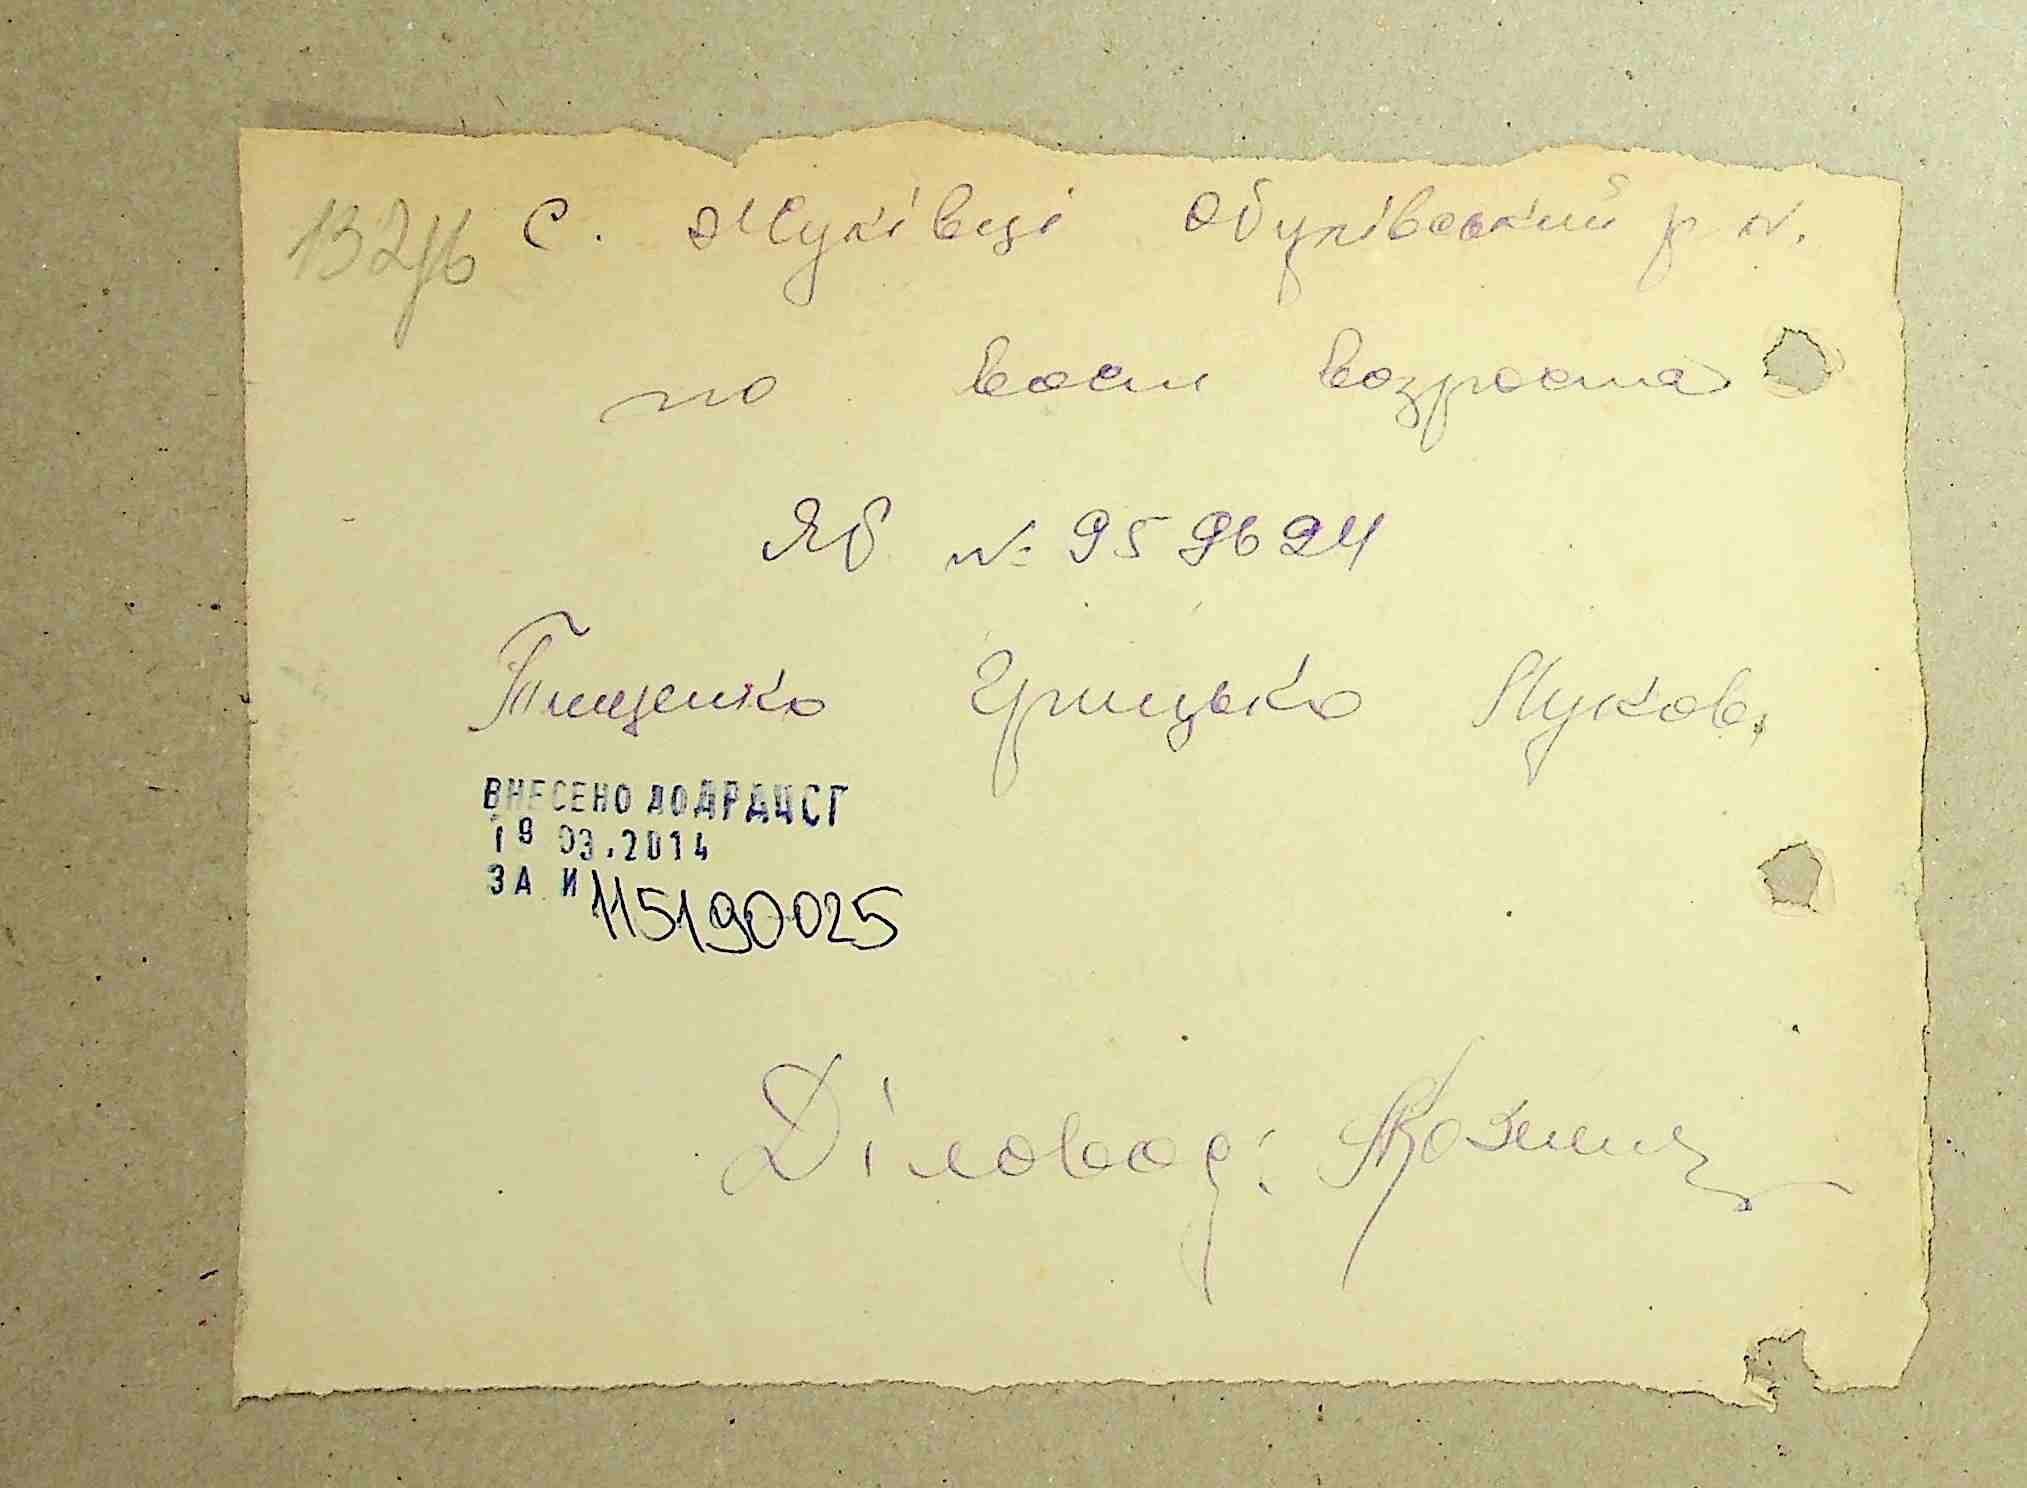 132зв С. Жуківці Обухівський р н.
по восм возроста
ЯБ № 959624
Тищенко Грицько Луков.
ВНЕСЕНО ДО ДРАЦСГ
19 03.2014
ЗА И 115190025
Діловод: